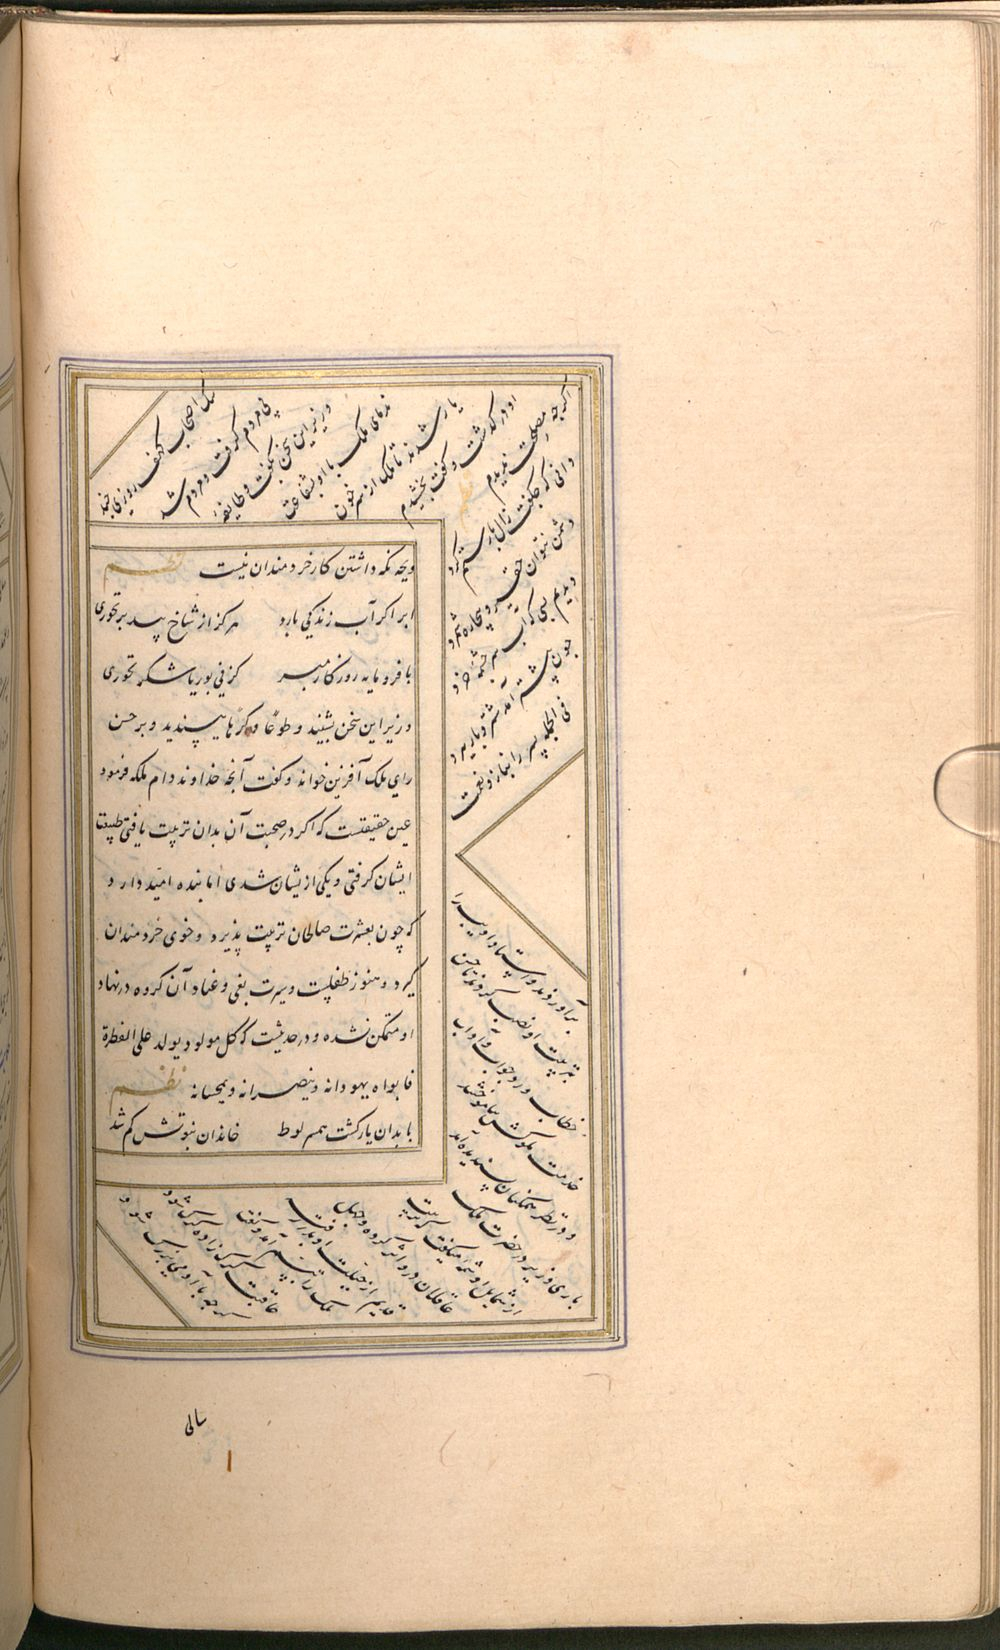 وبچه نگه داشتن کار خردمندان نیست نظم
ابر اگر آب زندگی بارد هرگز از شاخ بید بر نخوری
با فرومایه روزگار مبر کز نی بوریا شکر نخوری
وزیر این سخن بشنید و طوعا و کرها بپسندید و بر حسن
رای ملک آفرین خواند و گفت آنچه خداوند دام ملکه فرمود
عین حقیقتست که اگر در صحبت آن بدان تربیت یافتی طبیعت
ایشان گرفتی و یکی از یشان شدی اما بنده امیدوارد
که چون بعشرت صالحان تربیت پذیرد و خوی خردمندان
گیرد و هنوز طفلست و سیرت بغی و عناد آن گروه در نهاد
او متمکن نشده و در حدیثست که کل مولود یولد علی الفطرة
فابواه یهودانه و ینصرانه و یمجسانه نظم
با بدان یار گشت همسر لوط خاندان نبوتش گم شد
سک اصحاب کهف روزی چند
پی مردم گرفت و مردم شد
وزیر این سخن بگفت و طایفه
ندمای ملک با او بشفاعت
یار شدند تا ملک از سر خون
او در گذشت و گفت بخشیدم
اگرچه مصلحت ندیدم نظم
دانی که چه گفت زال با رستم گرد
دشمن نتوان حقیر و بیچاره شمرد
دیدیم بسی که آب سر چشمه خرد
چون بیشتر آمد شتر و بار ببرد
فی الجمله پسر را بناز و نعمت
برآوردند و استاد ادیب را
بتربیت او نصب کردند تا حسن
خطاب و رد جواب و آداب
خدمت ملوکش بیاموختند
و در نظر همگنان پسندیده آمد
باری وزیر در حضرت ملک
از شمایل او شمه میگفت که تربیت
عاقلان درو اثر کرده و جهل
قدیم از جبلت او بدر رفته
ملک را تبسم آمد و گفت
عاقبت گرگ زاده گرگ شود
گرچه با آدمی بزرگ شود
سالی